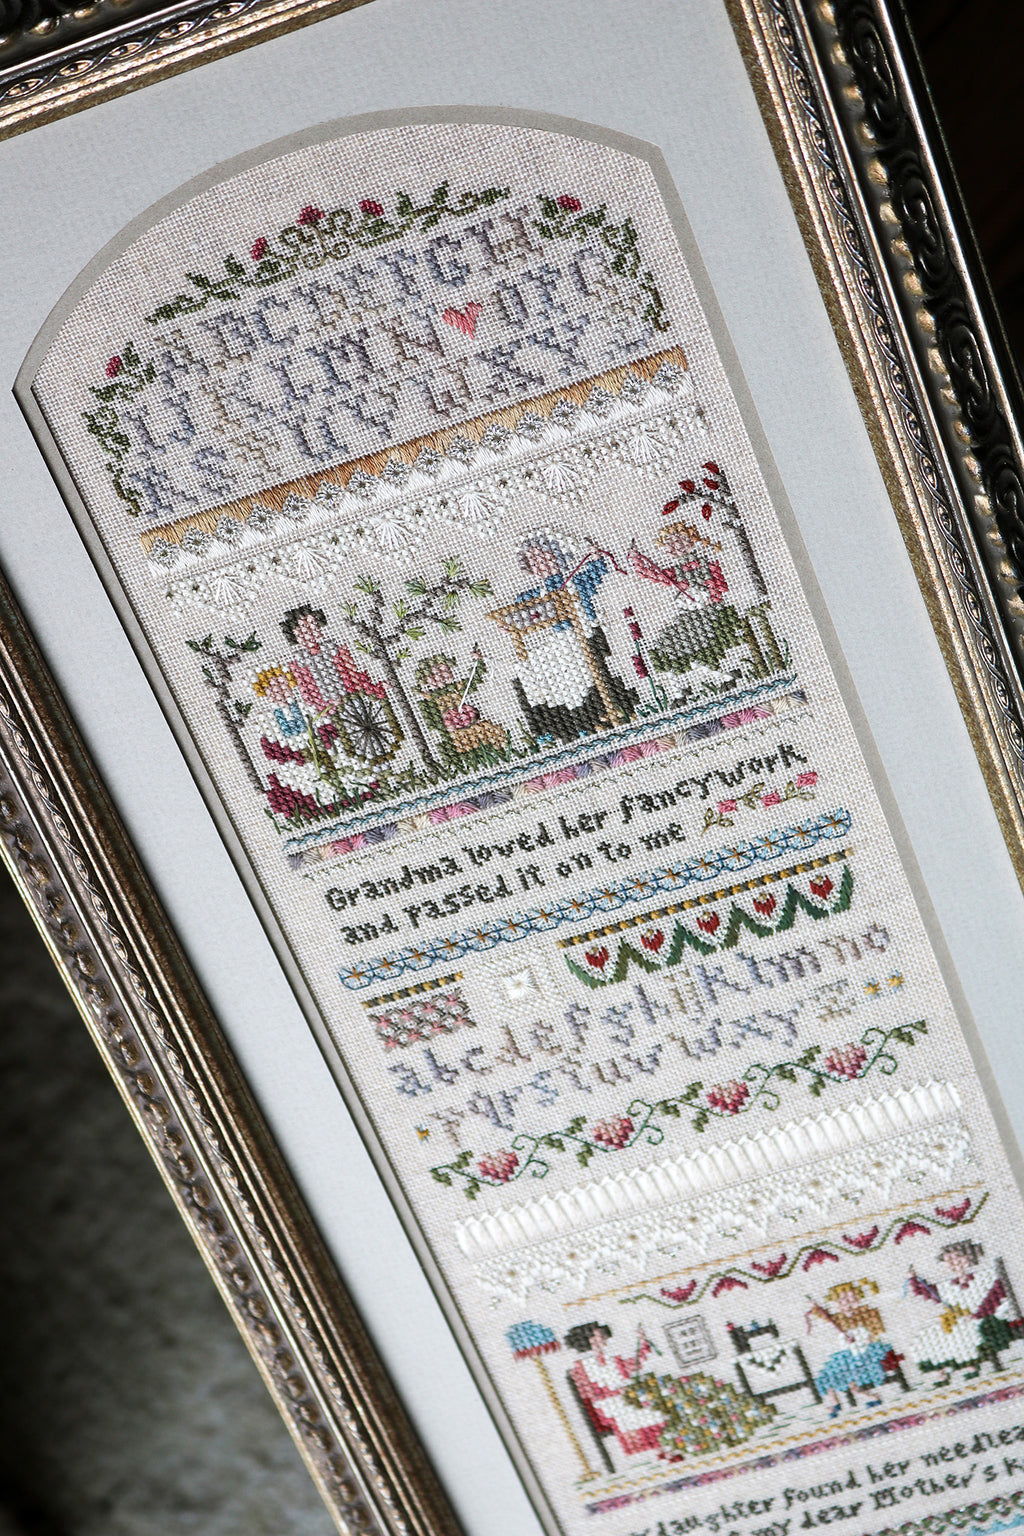 ABCDEFGH
IJKLMN OPQ
RSTUVWXYZ
Grandma loved her fancywork
and passed it on to me
abcdefghijklmno
pqrstuvwxyz
daughter found her
my dear Mother's